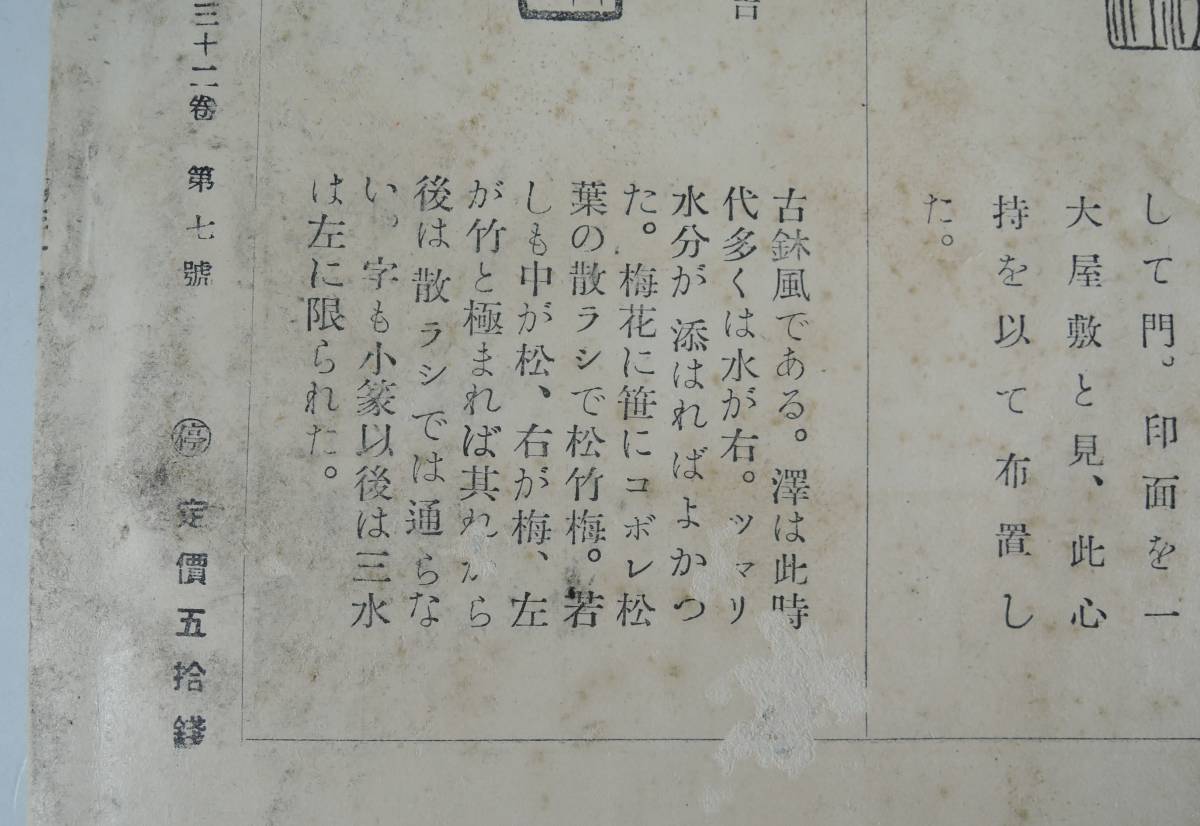 して門。印面を一
大屋敷と見、此心
持を以て布置し
た。
古鉢風である。澤は此時
代多くは水が右。ツマリ
水分が添はればよかつ
た。梅花に笹にコボレ松
葉の散ラシで松竹梅。若
しも中が松、右が梅、左
が竹と極まれば其れから
後は散ラシでは通らな
い。字も小篆以後は三水
は左に限られた。
三十二卷 第七號
停 定價五拾錢